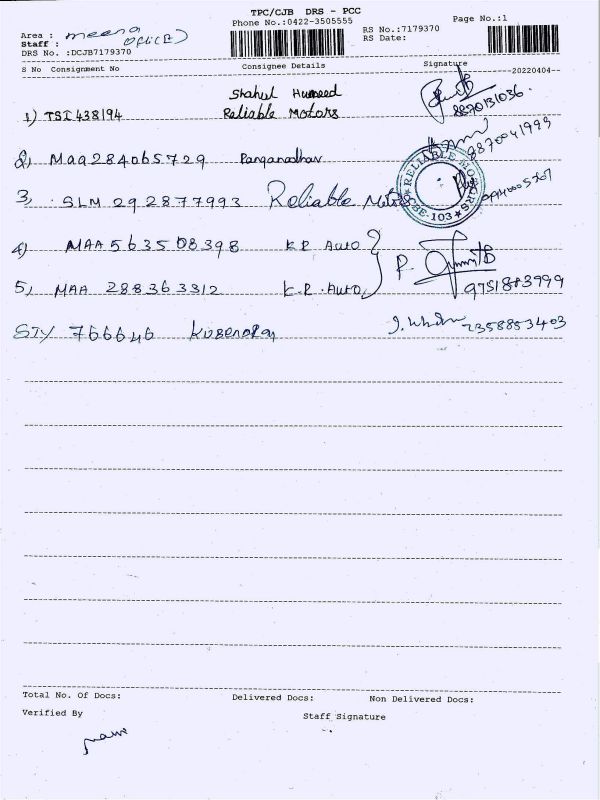 TPC/CJB DRS - PCC
Phone No.:0422-3505555
Page No.:1
Area : meena
Staff :
RS No.:7179370
RS Date:
DRS No. :DCJB7179370
S No Consignment No Consignee Details Signature
20220404
Shahul Hameed
1) TSI 438194 Reliable Motors 8870131036
2) Maa284065729 Ranganadhan 9870041993
3, SLM 292877993 Reliable Motors
RELIABLE MOTORS CBE-103
4) MAA 563508398 K.P. Auto
5, MAA 288363312 K.P. Auto 9751883999
STY 766646
Total No. Of Docs: Delivered Docs: Non Delivered Docs:
Verified By Staff Signature